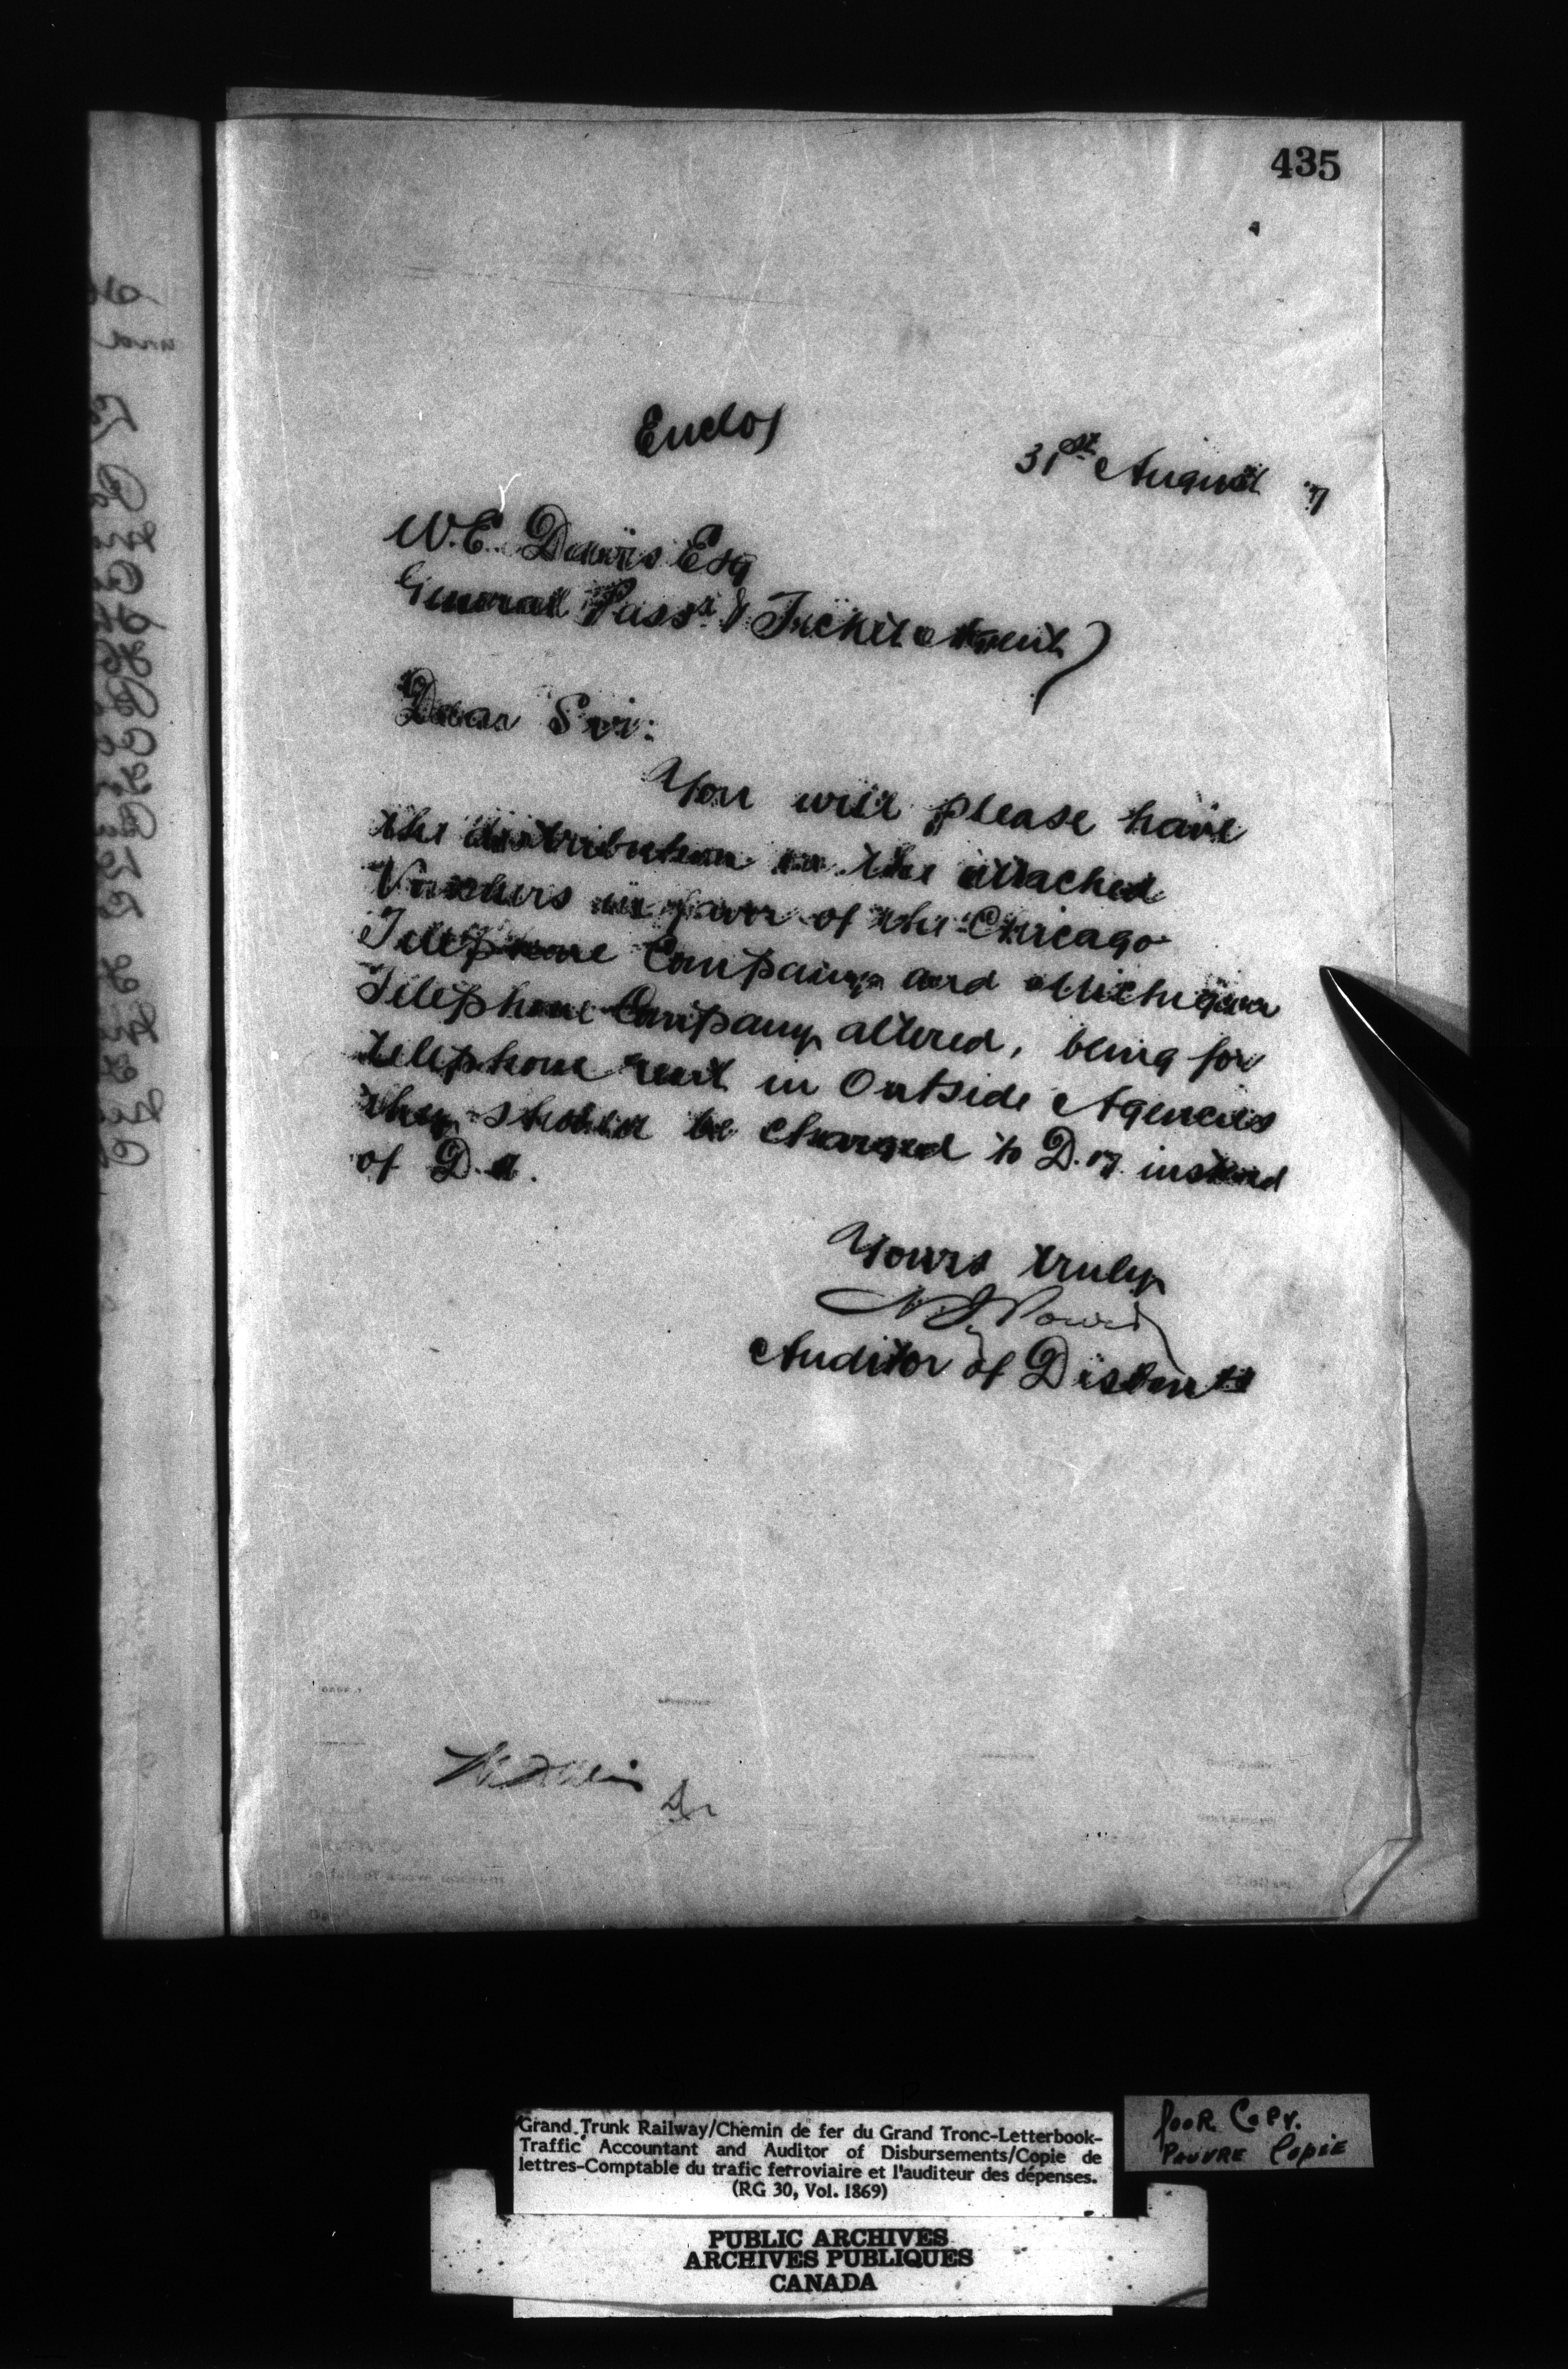 435
Enclos
31st August '7
W.E. Davis Esq
General Passr & Ticket Agent
Dear Sir:
You will please have
the distribution on the attached
Vouchers in favor of the Chicago
Telephone Company and Michigan
Telephone Company altered, being for
telephone rent in Outside Agencies
they should be charged to D.17. instead
of D.
Yours truly
Auditor of Disbmts
Grand Trunk Railway/Chemin de fer du Grand Tronc-Letterbook-
Traffic Accountant and Auditor of Disbursements/Copie de
lettres-Comptable du trafic ferroviaire et l'auditeur des dépenses.
(RG 30, Vol. 1869)
POOR COPY.
PAUVRE COPIE
PUBLIC ARCHIVES
ARCHIVES PUBLIQUES
CANADA